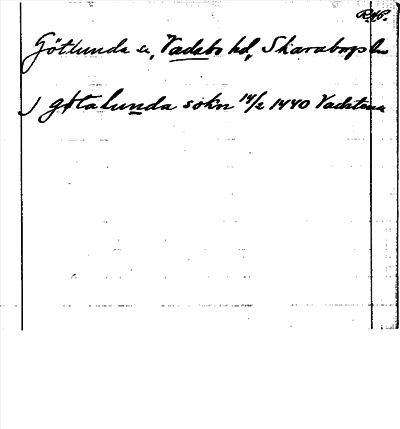 RAP.
Götlunda sn, Vadsbo hd, Skaraborgs län
J gøtalunda sokn 14/2 1440 Vadstena